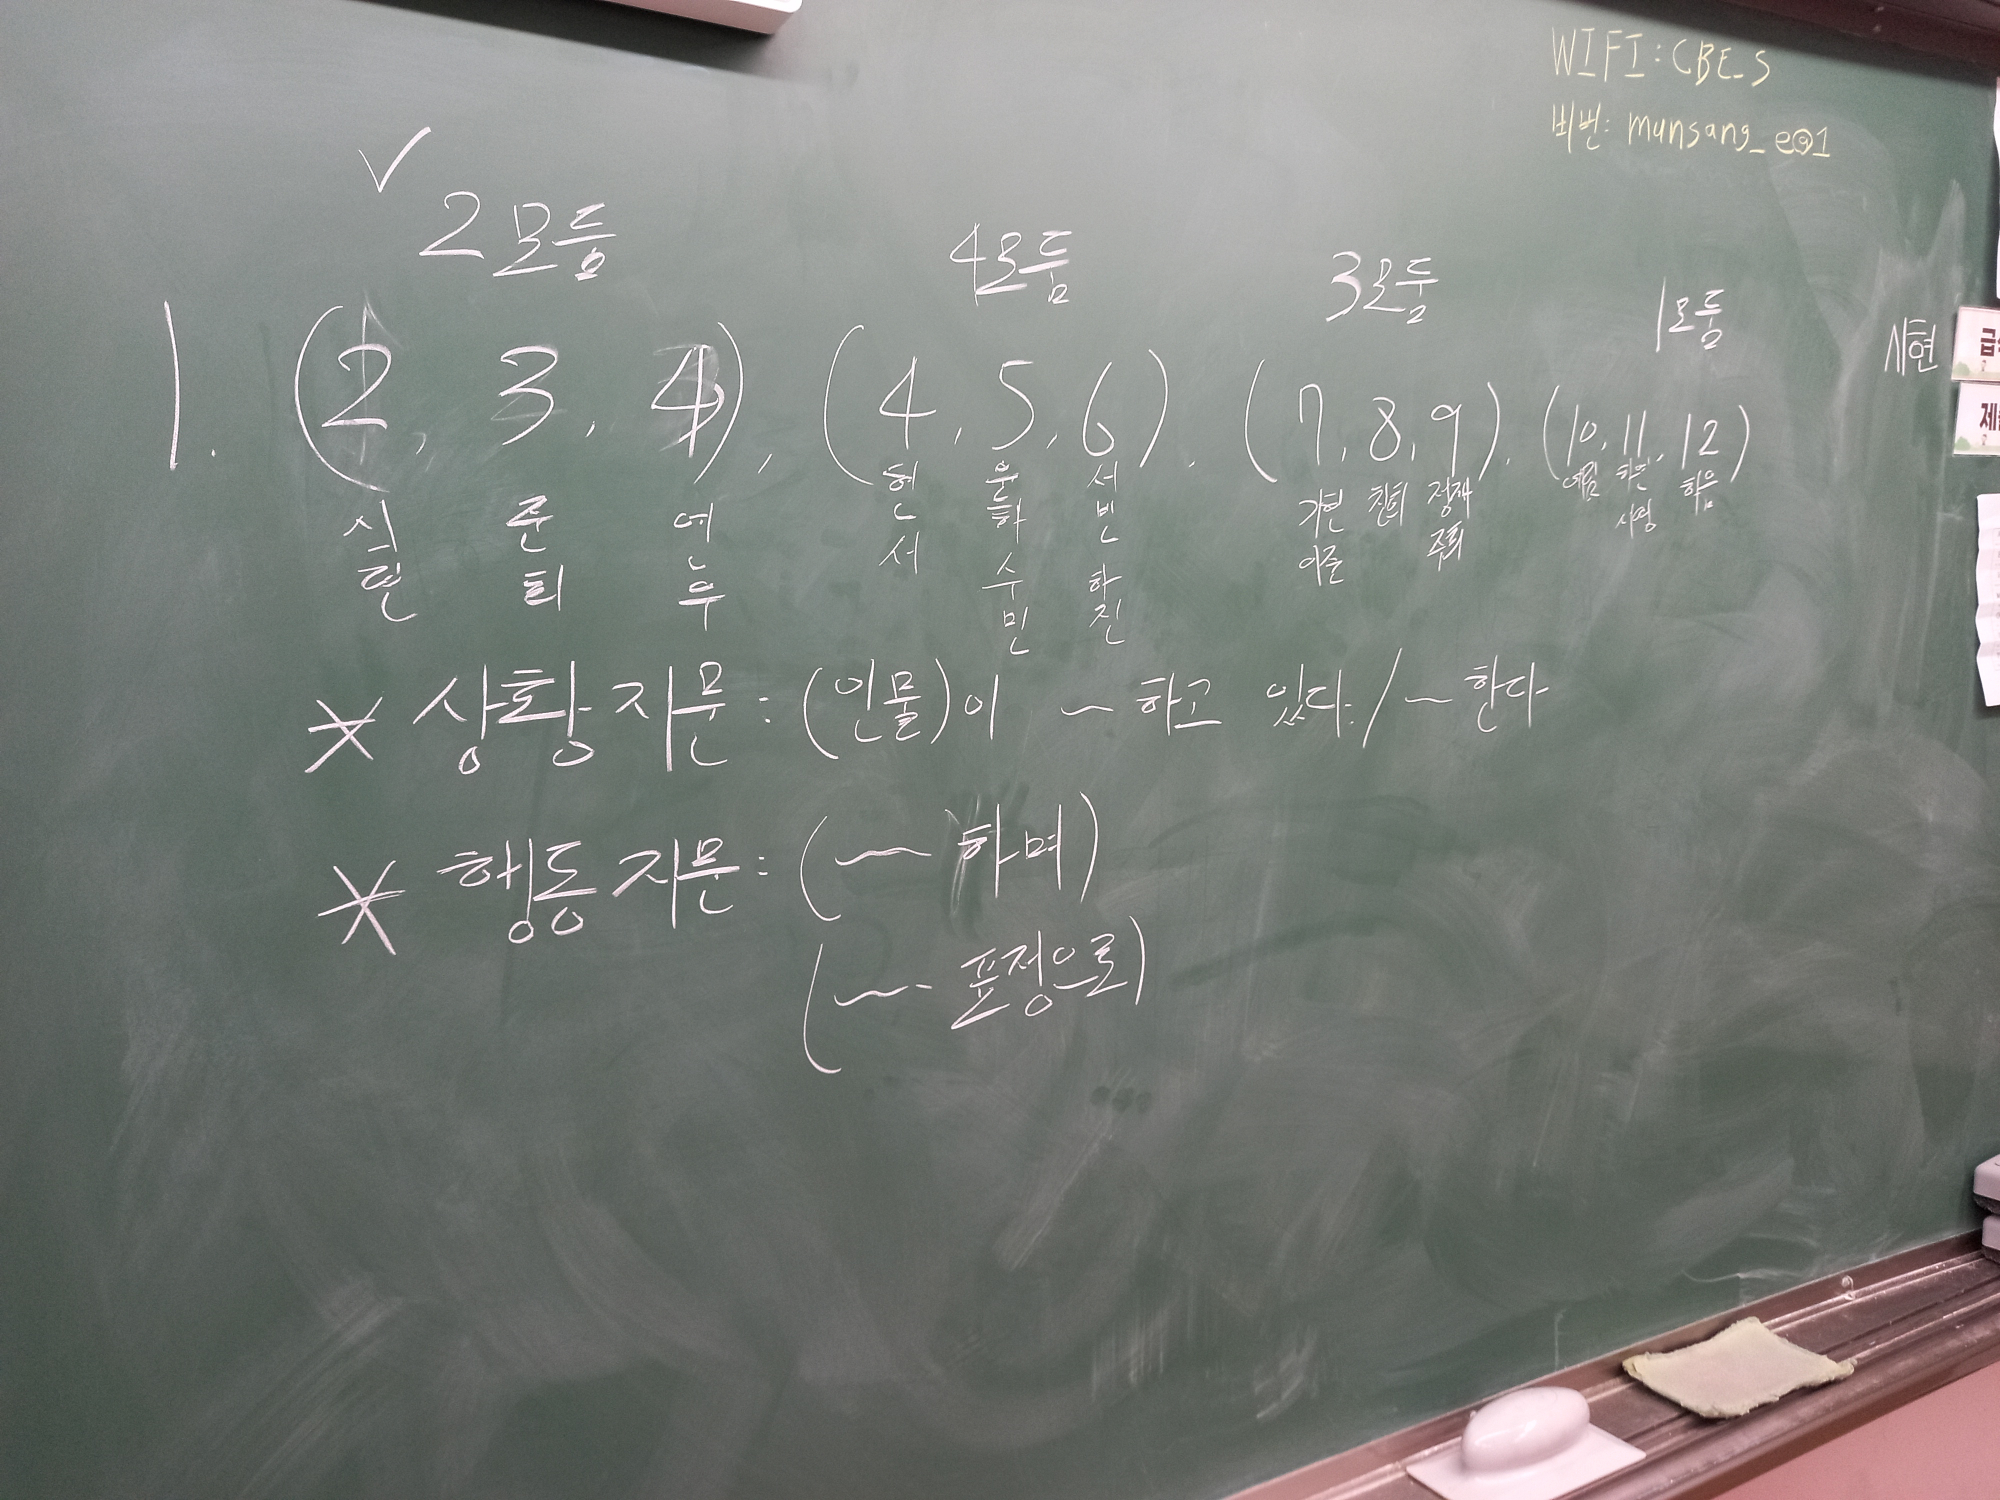 WIFI: CBE_S
비번: munsang_e@1
✓
2모둠 4모둠 3모둠 1모둠
1. (2, 3, 4), (4, 5, 6), (7, 8, 9), (10, 11, 12)
시현
시현 준희 연우 현서 윤하 수민 서빈 하진 가현 이준 찬희 정재 주희 예림 하은 하음
* 상황 지문: (인물)이 ~ 하고 있다./~한다
* 행동 지문: (~ 하며)
(~ 표정으로)